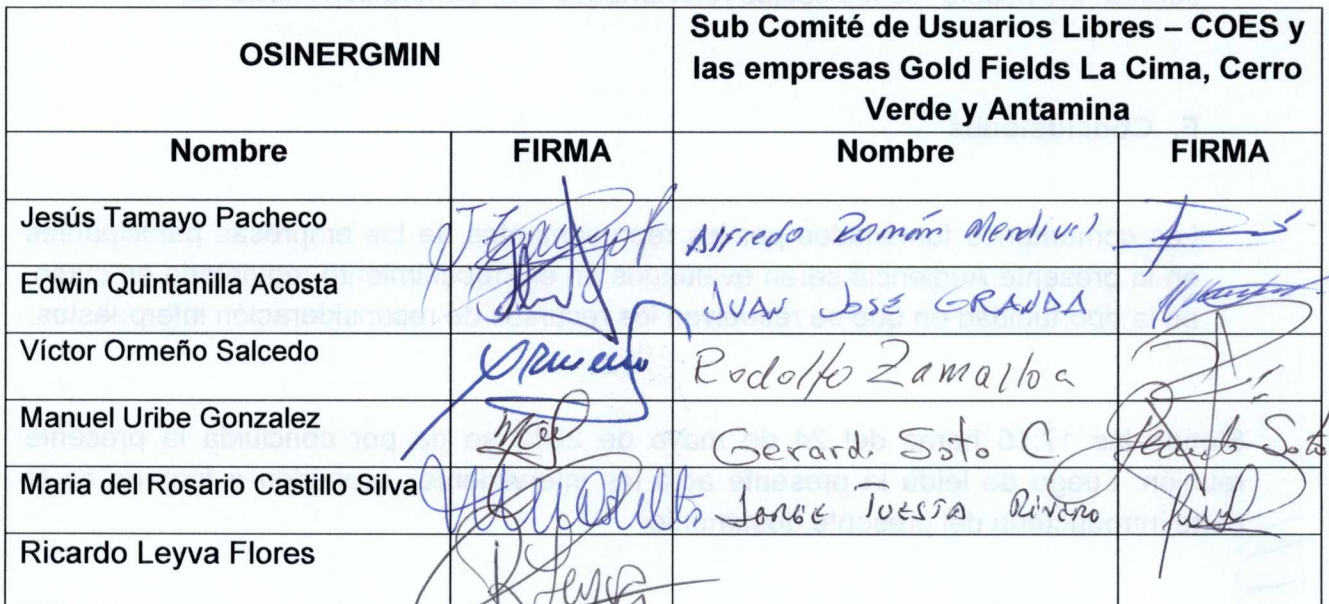 OSINERGMIN
Sub Comité de Usuarios Libres – COES y
las empresas Gold Fields La Cima, Cerro
Verde y Antamina
Nombre FIRMA Nombre FIRMA
Jesús Tamayo Pacheco Alfredo Román Mendivil
Edwin Quintanilla Acosta JUAN JOSÉ GRANDA
Víctor Ormeño Salcedo Ormeño Rodolfo Zamalloa
Manuel Uribe Gonzalez Gerardo Soto C. Gerardo Soto
María del Rosario Castillo Silva JORGE TUESTA RIVERO
Ricardo Leyva Flores